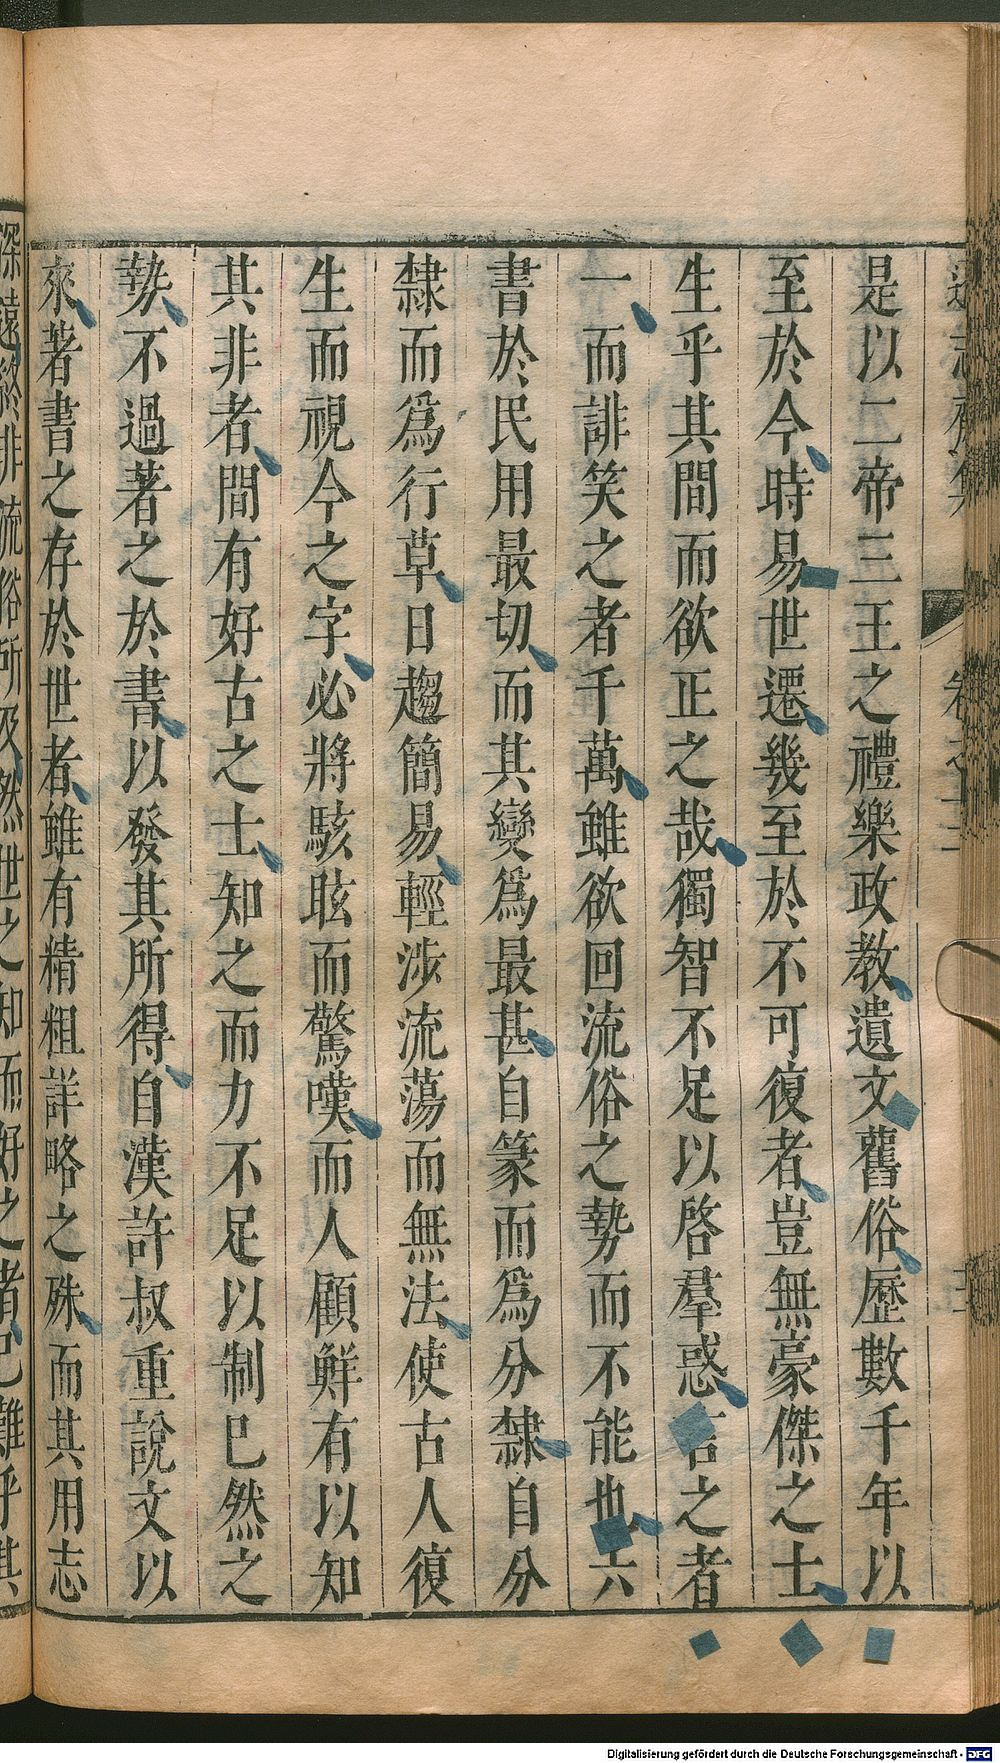 是以二帝三王之禮樂政教遺文舊俗歷數千年以
至於今時易世遷幾至於不可復者豈無豪傑之士
生乎其間而欲正之哉獨智不足以啓羣惑言之者
一而誹笑之者千萬雖欲回流俗之勢而不能也六
書於民用最切而其變爲最甚自篆而爲分隸自分
隸而爲行草日趨簡易輕涉流蕩而無法使古人復
生而視今之字必將駭眩而驚嘆而人顧鮮有以知
其非者間有好古之士知之而力不足以制已然之
勢不過著之於書以發其所得自漢許叔重說文以
來著書之存於世者雖有精粗詳略之殊而其用志
深遠終非流俗所及然世之知而好之者已難乎其
Digitalisierung gefördert durch die Deutsche Forschungsgemeinschaft - DFG